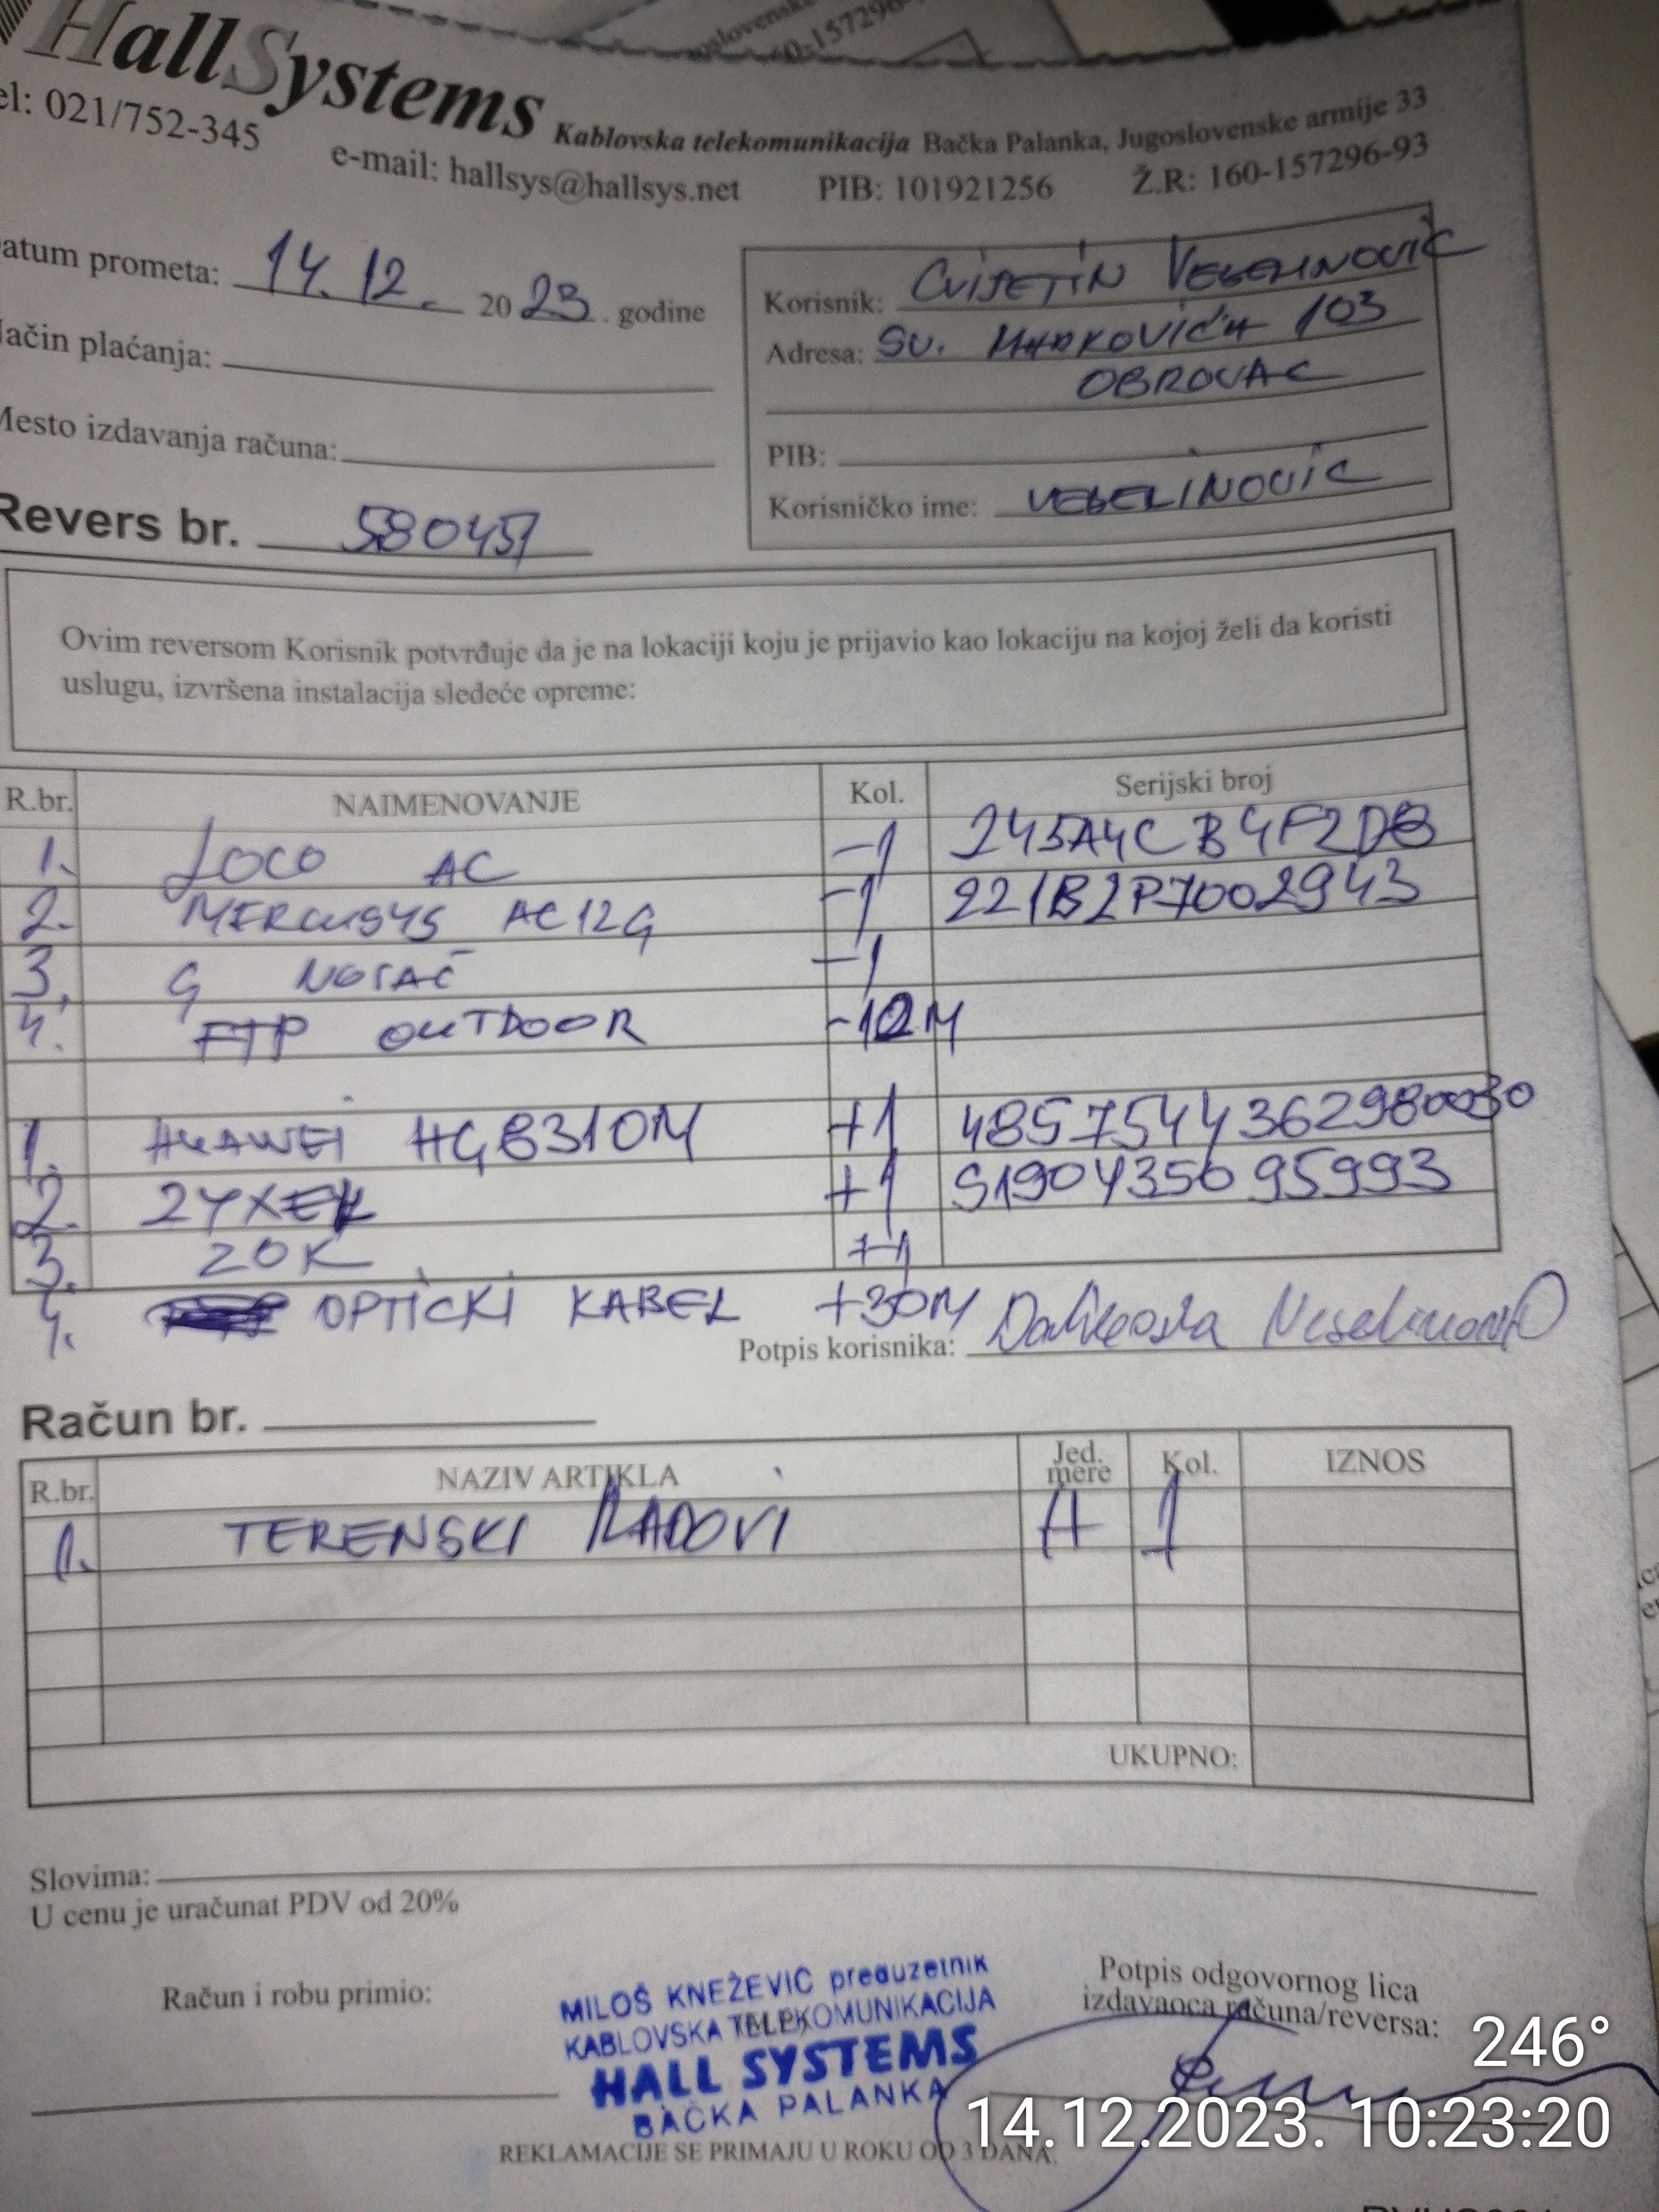 HallSystems
el: 021/752-345
Kablovska telekomunikacija Bačka Palanka, Jugoslovenske armije 33
e-mail: hallsys@hallsys.net PIB: 101921256 Ž.R: 160-157296-93
atum prometa: 14. 12. 2023. godine
Korisnik: CVIJETIN VESELINOVIĆ
Adresa: SV. MARKOVIĆA 103
OBROVAC
ačin plaćanja:
Mesto izdavanja računa:
PIB:
Korisničko ime: VESELINOVIC
Revers br. 580457
Ovim reversom Korisnik potvrđuje da je na lokaciji koju je prijavio kao lokaciju na kojoj želi da koristi
uslugu, izvršena instalacija sledeće opreme:
R.br. NAIMENOVANJE Kol. Serijski broj
1. LOCO AC -1 245A4CB4F2DB
2. MERCUSYS AC12G -1 221B2P7002943
3. G NOSAČ -1
4. FTP OUTDOOR -10M
1. HUAWEI HG8310M +1 4857544362980030
2. ZYXEL +1 S190435695993
3. ZOK +1
4. OPTIČKI KABEL +30M
Potpis korisnika:
Račun br.
R.br. NAZIV ARTIKLA Jed. mere Kol. IZNOS
1. TERENSKI RADOVI H 1
UKUPNO:
Slovima:
U cenu je uračunat PDV od 20%
Račun i robu primio:
MILOŠ KNEŽEVIĆ preduzetnik
KABLOVSKA TELEKOMUNIKACIJA
HALL SYSTEMS
BAČKA PALANKA
Potpis odgovornog lica
izdavaoca računa/reversa:
246°
14.12.2023. 10:23:20
REKLAMACIJE SE PRIMAJU U ROKU OD 3 DANA.